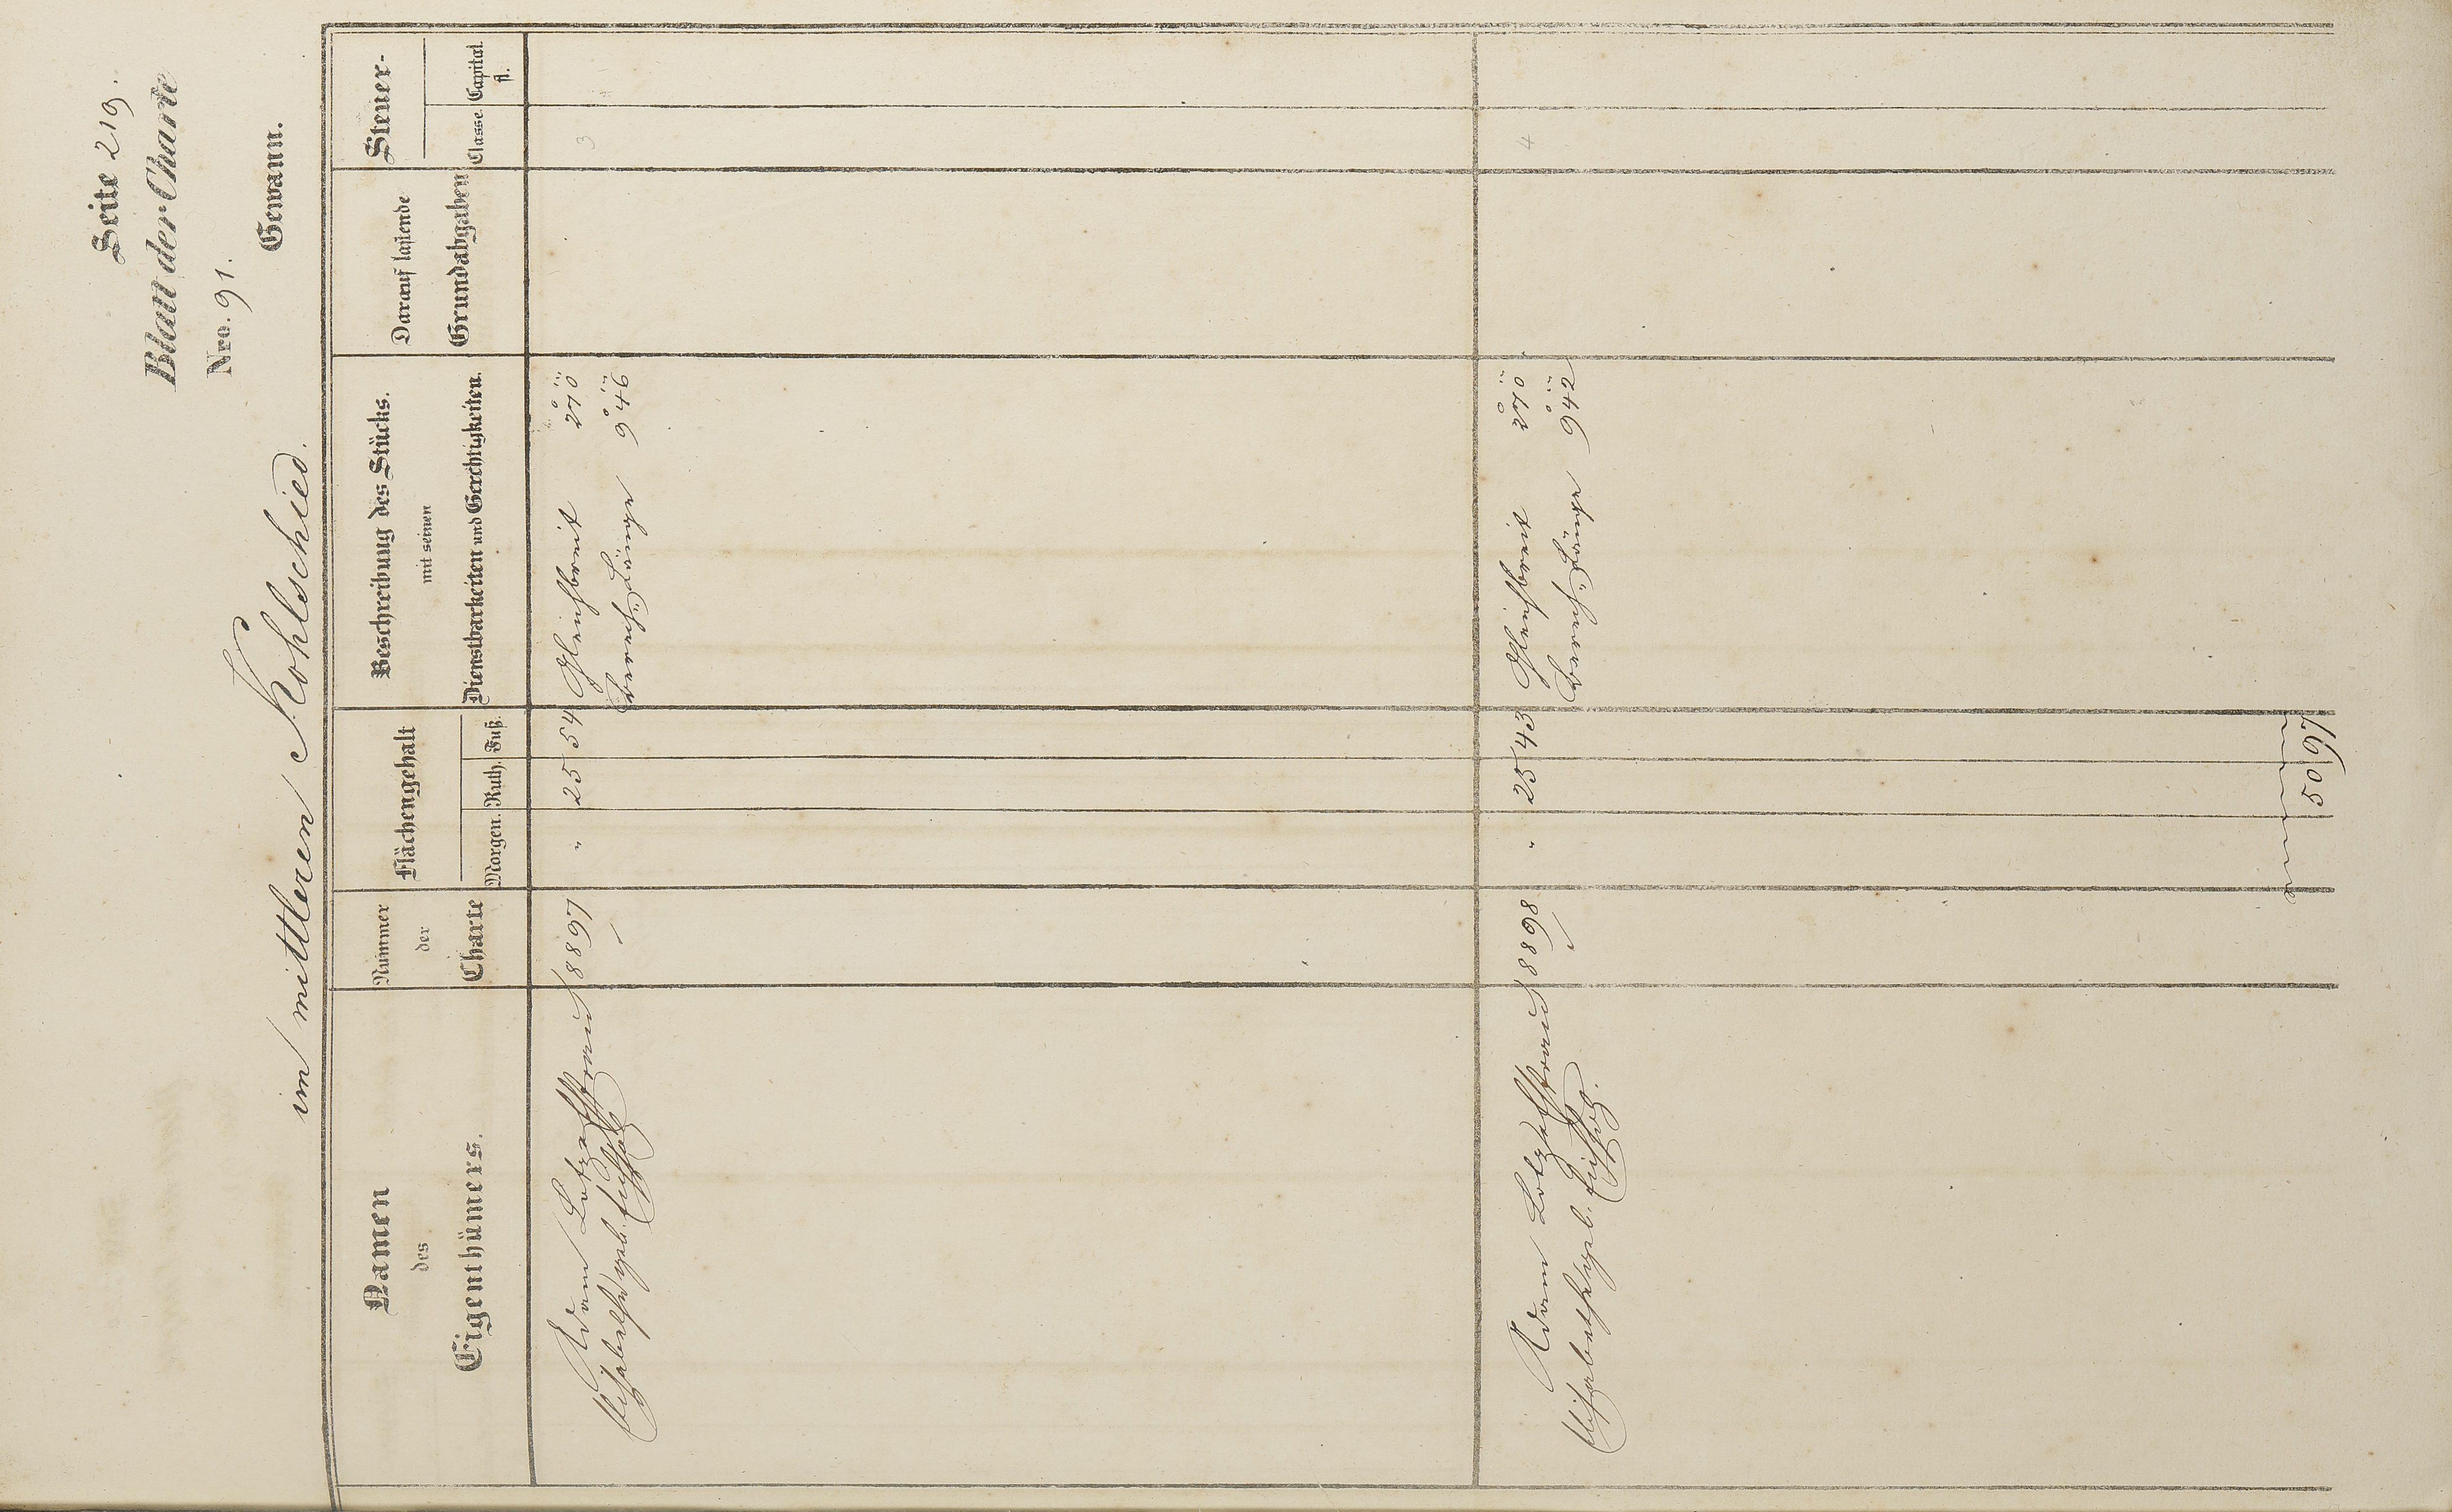 Seite 219.
Blatt der Charte
Nro. 91.
Gewann.
im mittleren Kohlschied.
Namen
des
Eigenthümers.
Nummer
der
Charte
Flächengehalt
Morgen. Ruth. Fuß.
Beschreibung des Stücks.
mit seinen
Dienstbarkeiten und Gerechtigkeiten.
Darauf lastende
Grundabgaben
Steuer-
Classe. Capital.
fl.
Adam 8897 " 25 54 Gleichbreit 2° 7 0''' 3
Elisabetha geb. berech. Länge 9° 4 6'''
Adam 8898 " 25 43 Gleichbreit 2° 7 0''' 4
Elisabetha geb. berech. Länge 9° 4 2'''
50 97